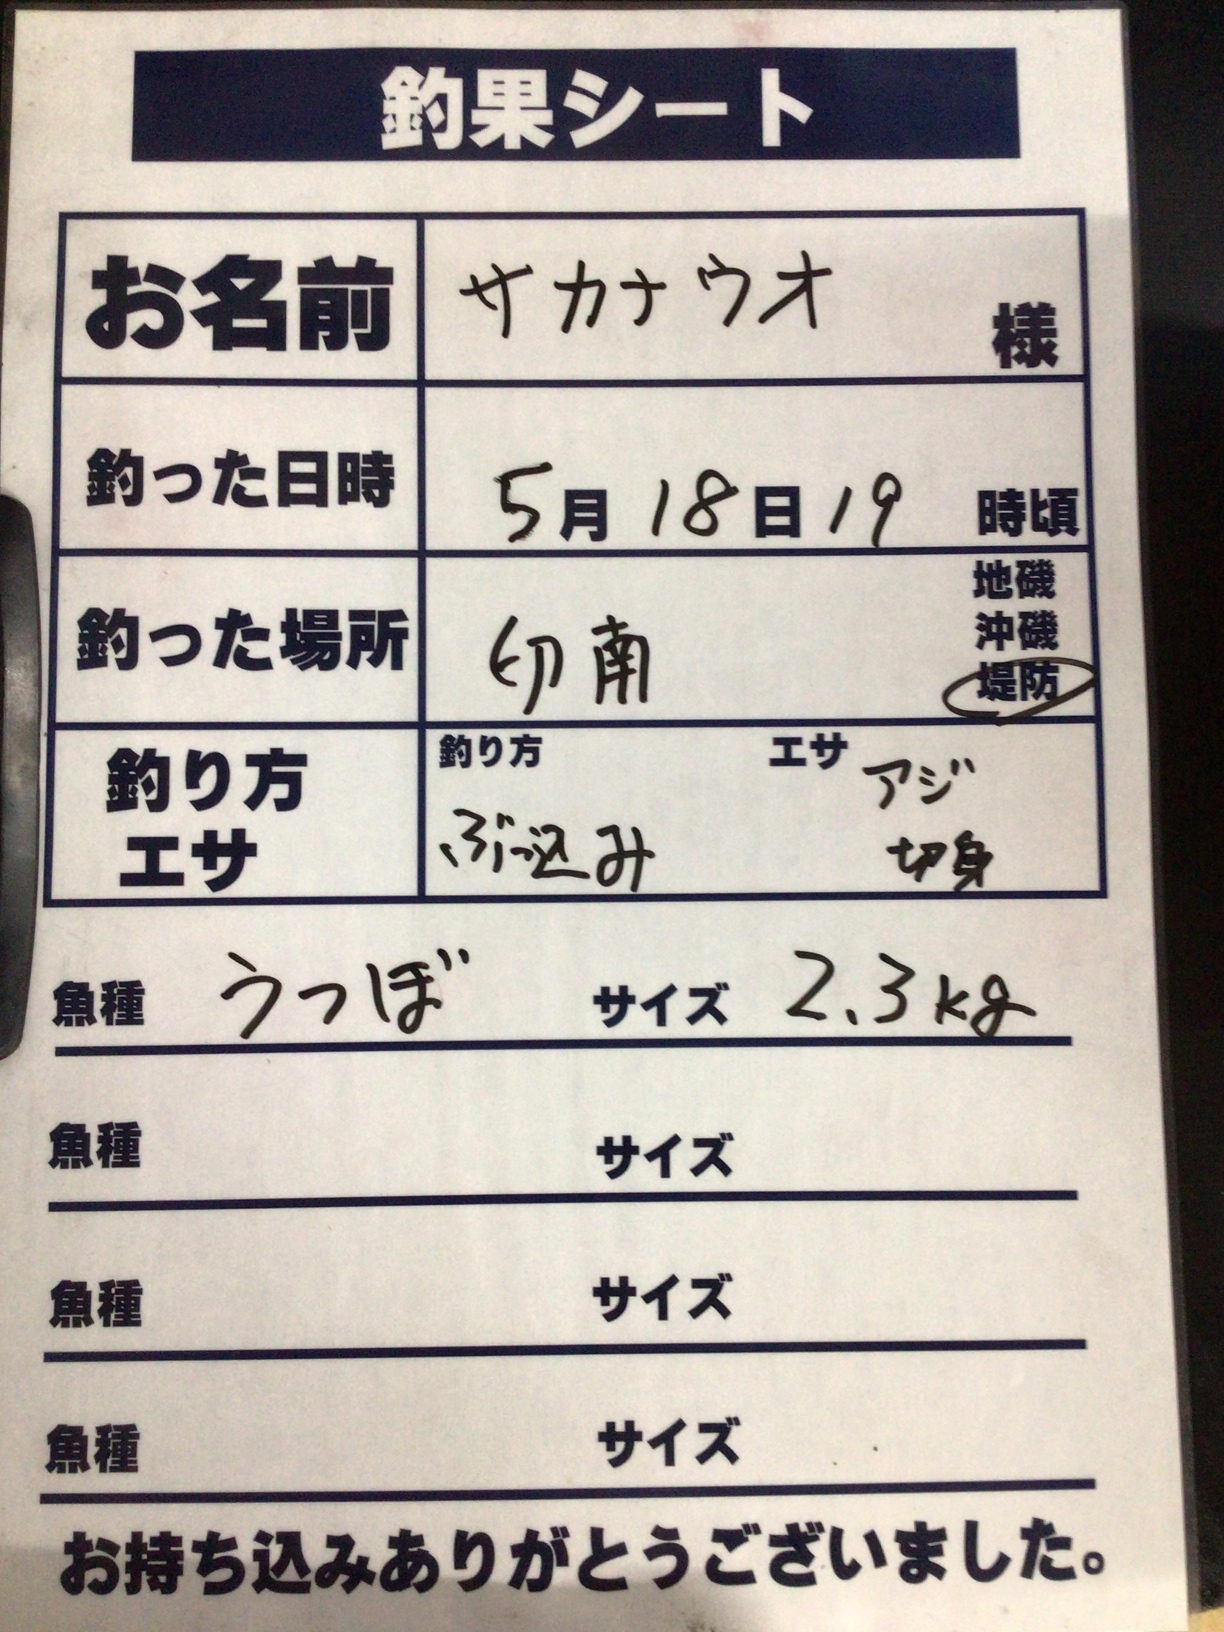 釣果シート
お名前 サカナウオ 様
釣った日時 5月18日19時頃
釣った場所 切南 地磯
沖磯
堤防
釣り方 エサ 釣り方 ぶっ込み エサ アジ
切身
魚種 うつぼ サイズ 2.3kg
魚種 サイズ
魚種 サイズ
魚種 サイズ
お持ち込みありがとうございました。